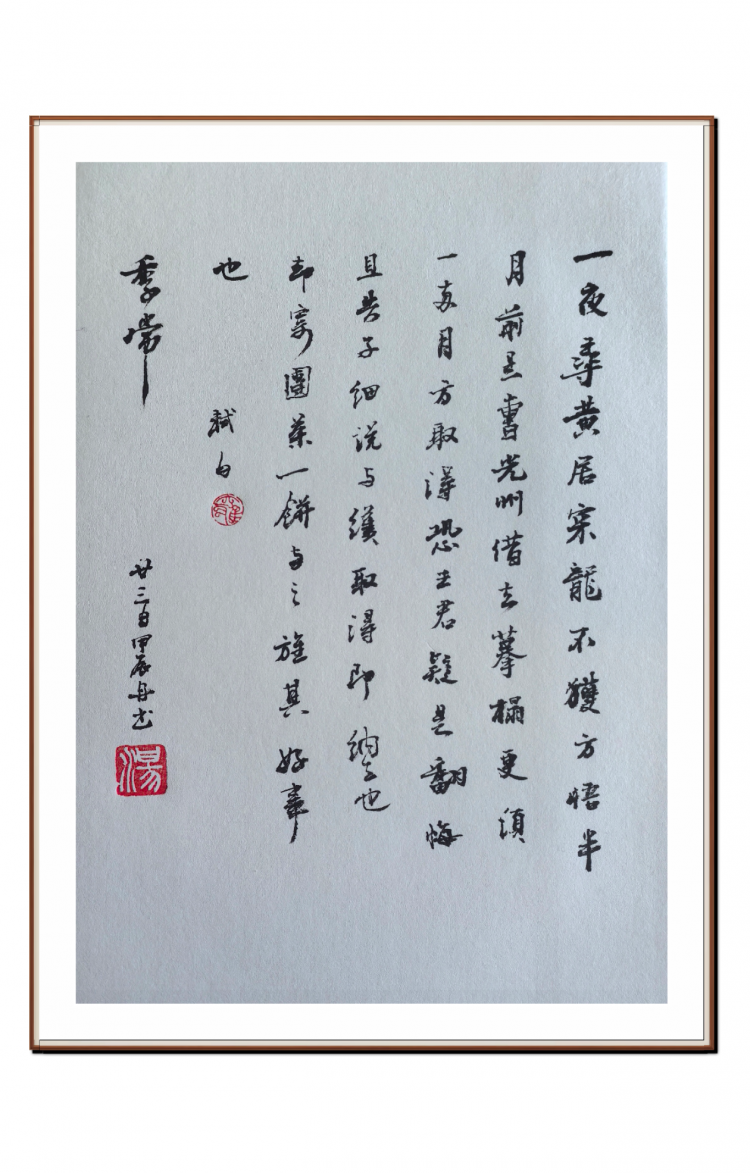 一夜尋黄居寀龍不獲方悟半
月前是曹光州借去摹榻更須
一兩月方取得恐王君疑是翻悔
且告子細説与纔取得即納去也
却寄團茶一餅与之旌其好事
也
軾白
季常
廿三日甲辰丹书
湯